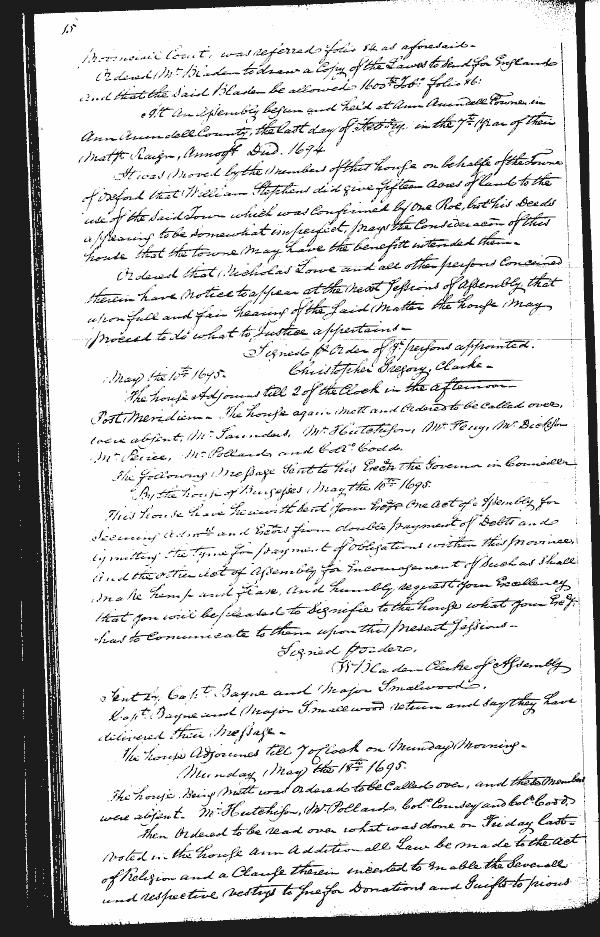 15
Provinciall Court, was referred folio 84 as aforesaid.
Ordered Mr Bladen to draw a Copy of the Lawes to send for England
and that the said Bladen be allowed folio 86:
Att An Assembly begun and held at Ann Arundell Towne in
Ann Arundell County, the last day of Febry. in the 7th Year of their
Matys Raign, Annoqe Dni. 1694
It was moved by the members of this house on behalfe of the Towne
of Oxford that William Stephens did give fifteen acres of land to the
use of the said Town which was Confirmed by One Roe, but his Deeds
appearing to be somewhat imperfect, prays the Consideracon of this
house that the towne may have the benefitt intended them.
Ordered that Nicholas Lowe and all other persons Concerned
therein have notice to appear at the next Sessions of Assembly, that
upon full and fair hearing of the said Matter the house may
proceed to do what to Justice appertains.
Signed by Order of ye persons appointed.
Christopher Gregory, Clarke.
May the 10th 1695.
The house Adjourns till 2 of the Clock in the afternoon
Post Meridiem. The house again mett and Ordered to be Called over,
were absent, Mr Saunders, Mr Hutchison, Mr Peny, Mr Dickson
Mr Perice, Mr Pollard, and Coll Codd.
The following Message Sent to his Excy the Governor in Councill
By the house of Burgesses, May the 10th 1695.
This house have herewith sent your Excy One Act of Assembly for
securing Admrs and Exctrs from double payment of Debts and
lymitting the tyme for payment of Obligations within this Province,
And the other Act of Assembly for Encouragement of such as shall
make hemp and flax, And humbly request your Excellency
that you will be pleased to Signifie to the house what your Excy.
has to Communicate to them upon this present Sessions.
Signed p order.
W Bladen Clerke of Assembly
Sent by Capt Bayne and Major Smalwood.
Capt Bayne and Major Smallwood return and say they have
delivered their Message.
The house Adjournes till 7 oClock on Munday Morning.
Munday, May the 13th 1695.
The house being mett was Ordered to be Called over, and these Members
were absent. Mr Hutchison, Mr Pollard, Coll Coursey and Coll Codd.
Then Ordered to be read over what was done on Friday last.
Voted in the house Ann Additionall Law be made to the Act
of Religion and a Clause therein inserted to Enable the Severall
and respective vestrys to for Donations and Guifts to pious